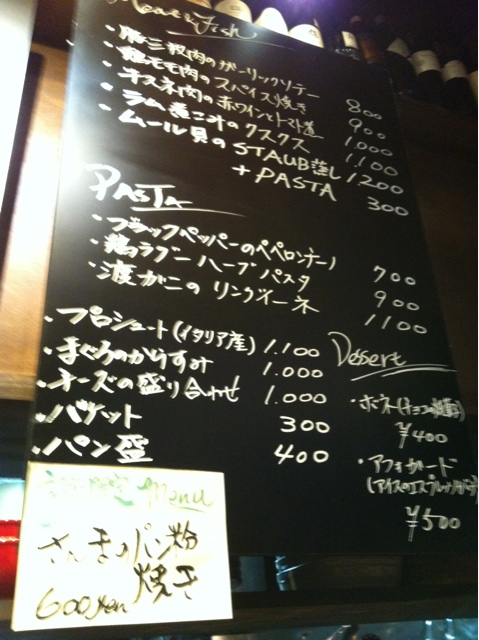 Meat & Fish
・豚三枚肉のガーリックソテー 800
・鶏モモ肉のスパイス焼き 900
・牛スネ肉の赤ワインとトマト煮 1,000
・ラム煮こみのクスクス 1,100
・ムール貝のSTAUB蒸し 1,200
+PASTA 300
PASTA
・ブラックペッパーのペペロンチーノ 700
・鶏ラグーハーブパスタ 900
・渡がにのリングイーネ 1100
・プロシュート(イタリア産) 1,100
・まぐろのからすみ 1.000
・チーズの盛り合わせ 1.000
・バゲット 300
・パン盛 400
Dessert
・ボネ(チョコの焼菓子)
¥400
・アフォガード
(アイスのエスプレッソがけ)
¥500
Menu
さんまのパン粉
焼き
600yen